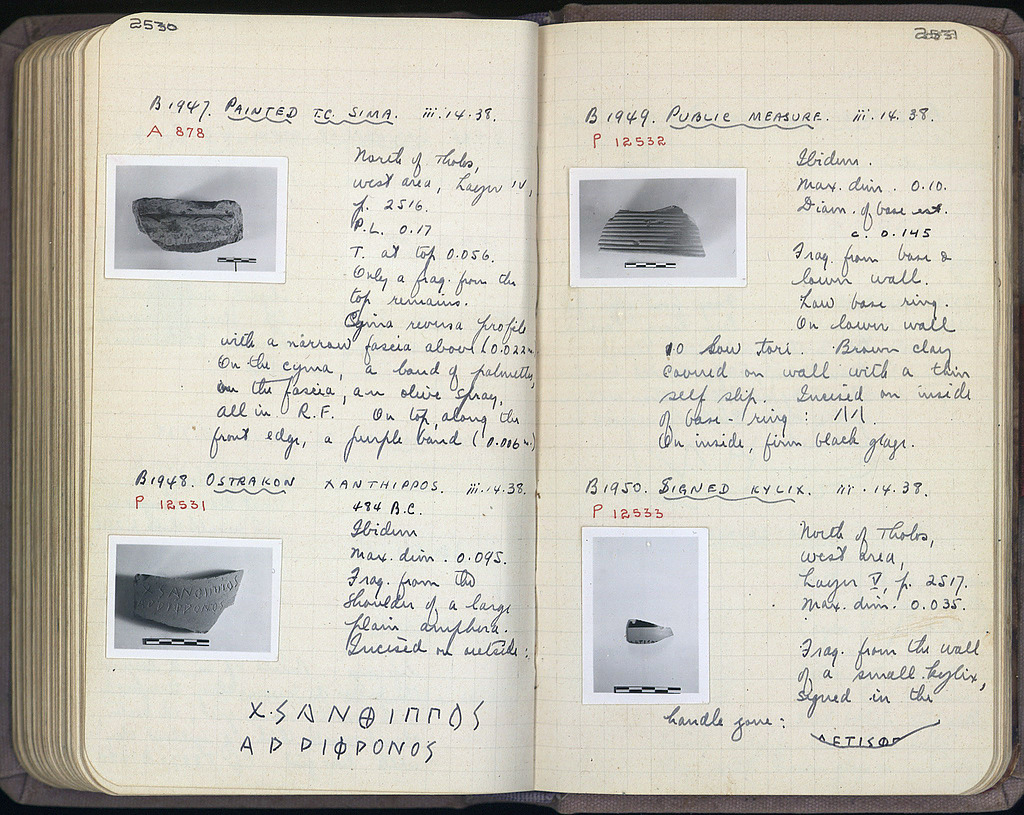 2530
B 1947. PAINTED T.C. SIMA. iii.14.38.
A 878
North of Tholos,
west area, Layer IV,
p. 2516.
P.L. 0.17
T. at top 0.056.
Only a frag. from the
top remains.
Cyma reversa profile
with a narrow fascia above (0.022 m.)
On the cyma, a band of palmettes,
on the fascia, an olive spray,
all in R.F. On top, along the
front edge, a purple band (0.006 m.)
B 1948. OSTRAKON XANTHIPPOS. iii.14.38.
P 12531
484 B.C.
Ibidem
Max. dim. 0.095.
Frag. from the
shoulder of a large
plain amphora.
Incised on outside:
ΧSΑΝΘΙΠΠΟS
ΑΡΡΙΦΡΟΝΟS
2531
B 1949. PUBLIC MEASURE. iii.14.38.
P 12532
Ibidem.
Max. dim. 0.10.
Diam. of base est.
c. 0.145
Frag. from base &
lower wall.
Low base ring.
On lower wall
10 low tori. Brown clay
covered on wall with a thin
self slip. Incised on inside
of base-ring: ////
On inside, firm black glaze.
B 1950. SIGNED KYLIX. iii.14.38.
P 12533
North of Tholos,
west area,
Layer V, p. 2517.
Max. dim. 0.035.
Frag. from the wall
of a small kylix,
signed in the
handle zone: